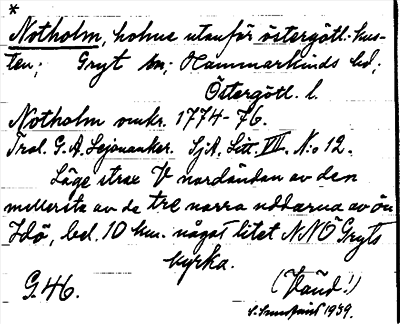 *
Notholm, holme utanför östergötl. kus-
ten; Gryt sn; Hammarkinds hd;
Östergötl. l.
Notholm omkr. 1774-76.
Trol. G. A. Lejonanker. SjA. Litt. VII. N:o 12.
Läge strax V nordändan av den
mellersta av de tre norra uddarna av ön
Idö, bel. 10 km. något litet NNÖ Gryts
kyrka.
G. 46. (Vänd!)
1939.